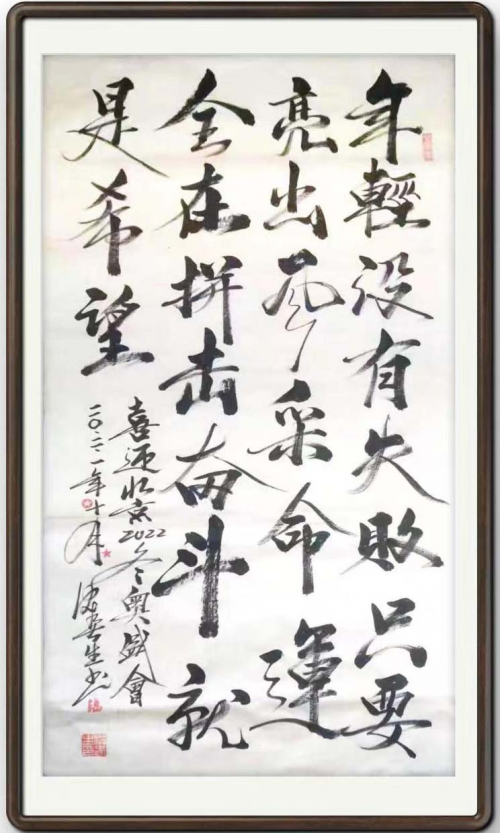 年輕没有失败只要
亮出风采命運
全在拼击奋斗就
是希望
喜迎北京2022冬奥盛會
二〇二一年十月
安生书